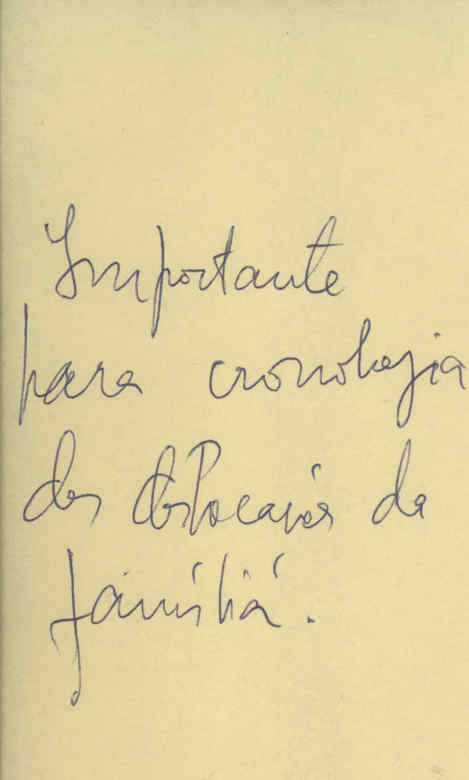 Importante
para cronologia
das deslocações da
família.